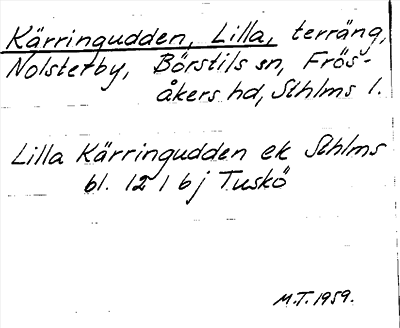 Kärringudden, Lilla, terräng,
Nolsterby, Börstils sn, Frös-
åkers hd, Sthlms l.
Lilla Kärringudden ek Sthlms
bl. 12 1 b j Tuskö
M.T. 1959.